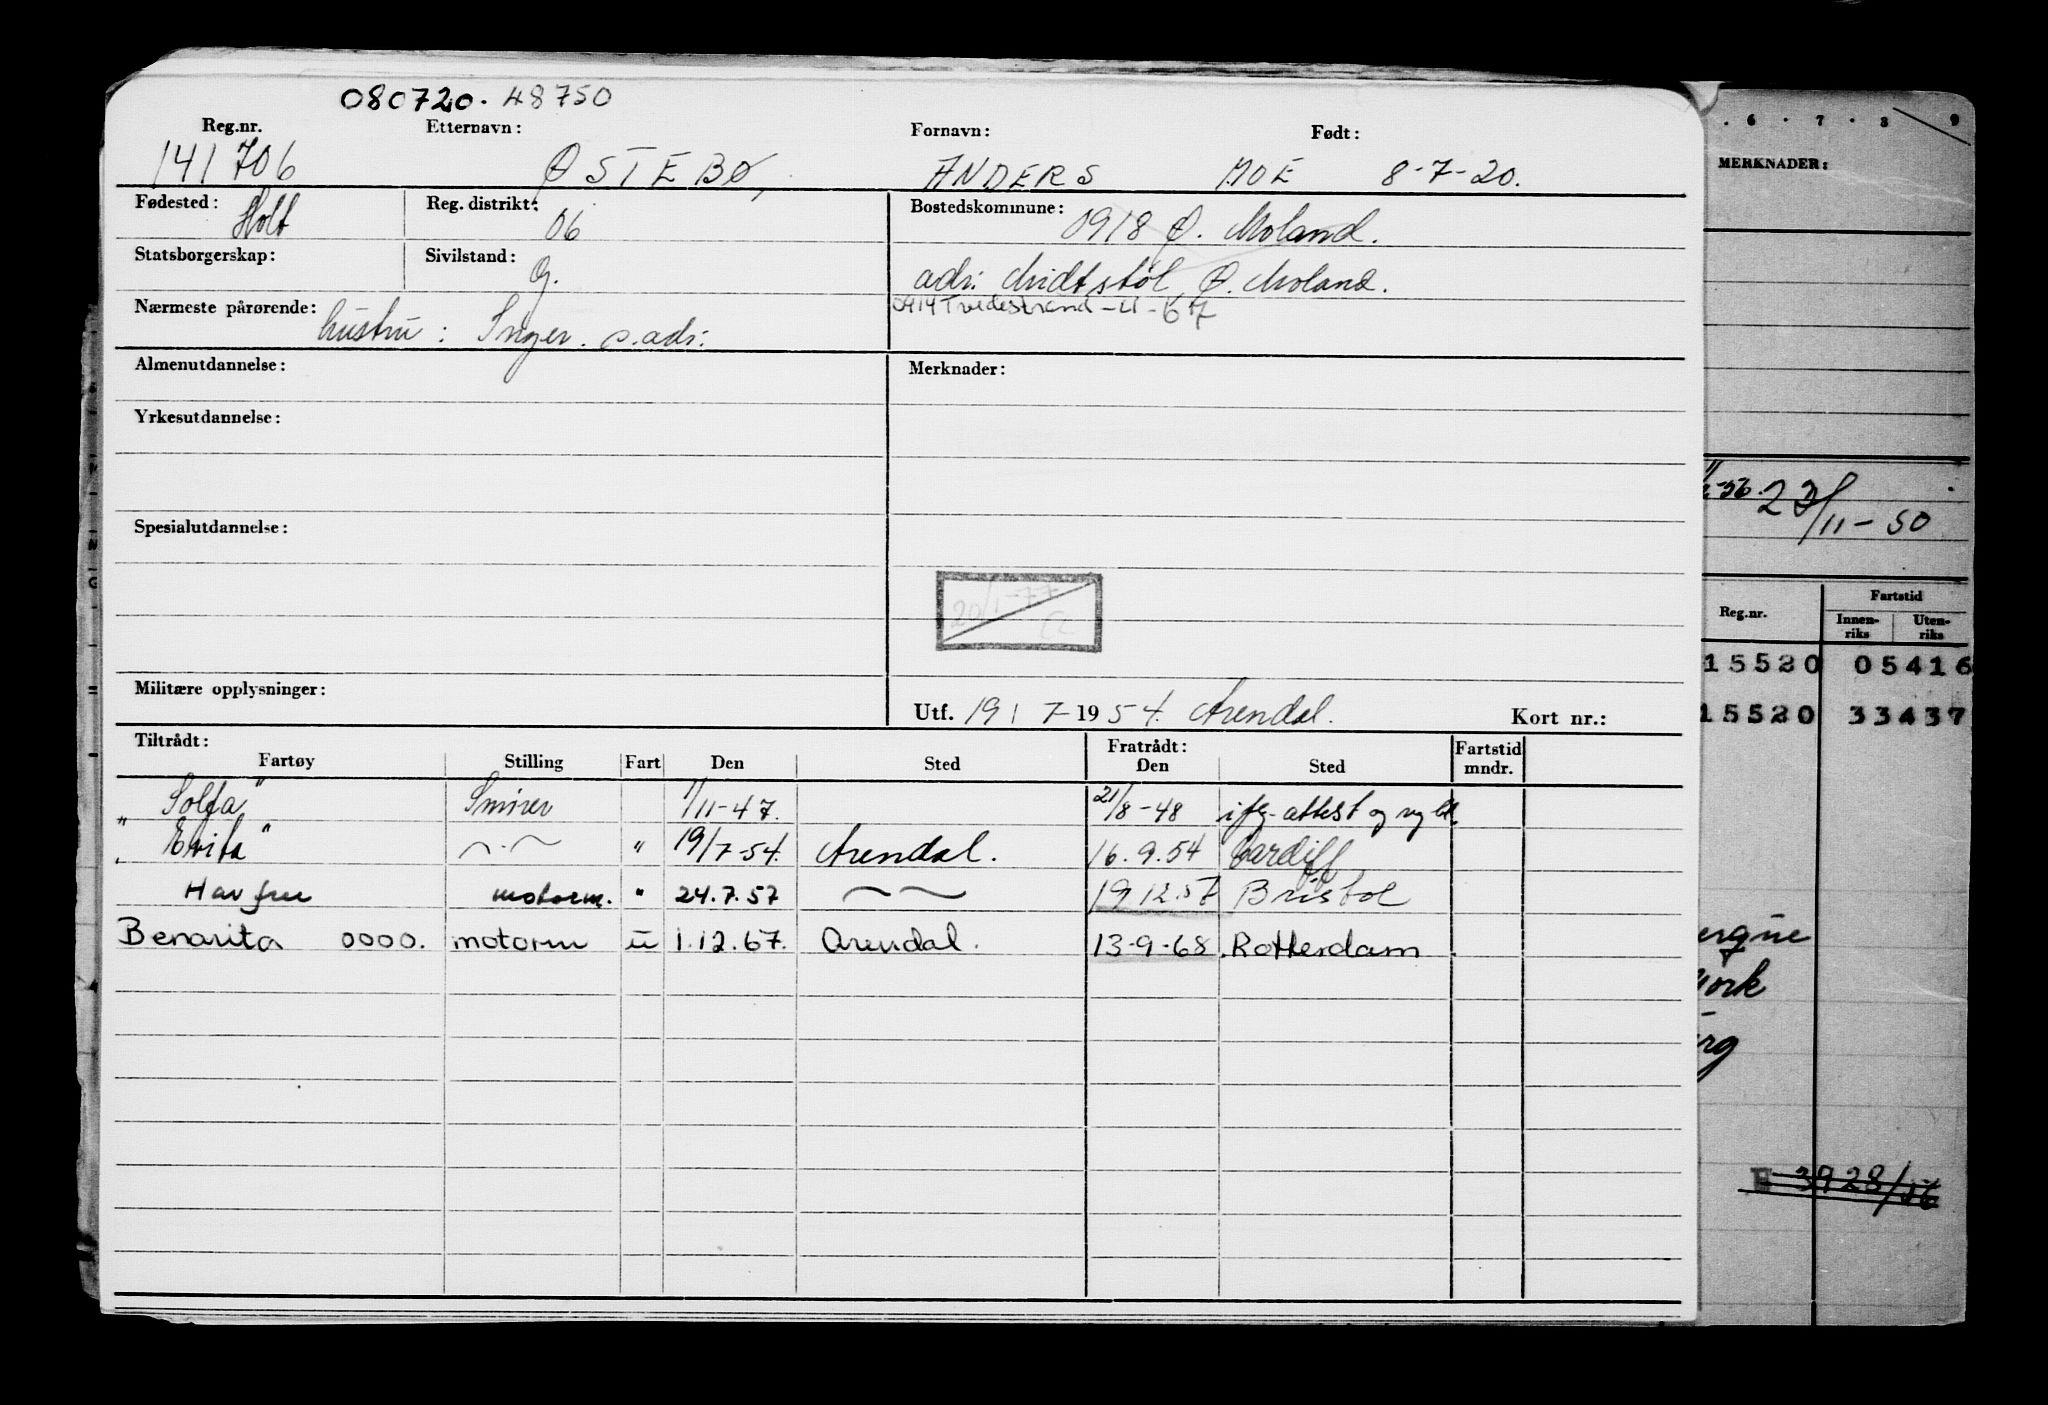 080720. 48750
Reg.nr. Etternavn: Fornavn: Født:
141706 ØSTEBØ, ANDERS MOE 8-7-20.
Fødested: Holt Reg. distrikt: 06 Bostedskommune: 0918 Ø. Moland.
Statsborgerskap: Sivilstand: G. adr. Midtstøl, Ø. Moland.
Nærmeste pårørende: hustru: Inger. s.adr. 0914 Tvedestrand - 11-67
Almenutdannelse: Merknader:
Yrkesutdannelse:
Spesialutdannelse:
20/1-77
Militære opplysninger:
Utf. 19 / 7-1954. Arendal. Kort nr.:
Tiltrådt: Fratrådt: Fartstid
Fartøy Stilling Fart Den Sted Den Sted mndr.
"Solfa" Smører 1/11-47. 21/8-48 ifg. attest og
"Evita" —·— " 19/7-54. Arendal. 16.9.54 Cardiff
Havfru motorm. " 24.7.57 — — 19 12.57 Bristol
Benarita 0000. motorm u 1.12.67. Arendal. 13-9-68. Rotterdam
. 6 . 7 . 8 9
MERKNADER:
-56. 23/11-50
Reg.nr. Fartstid
Innen-riks Uten-riks
15520 05416
15520 33437
ergne
York
rg
3928/56